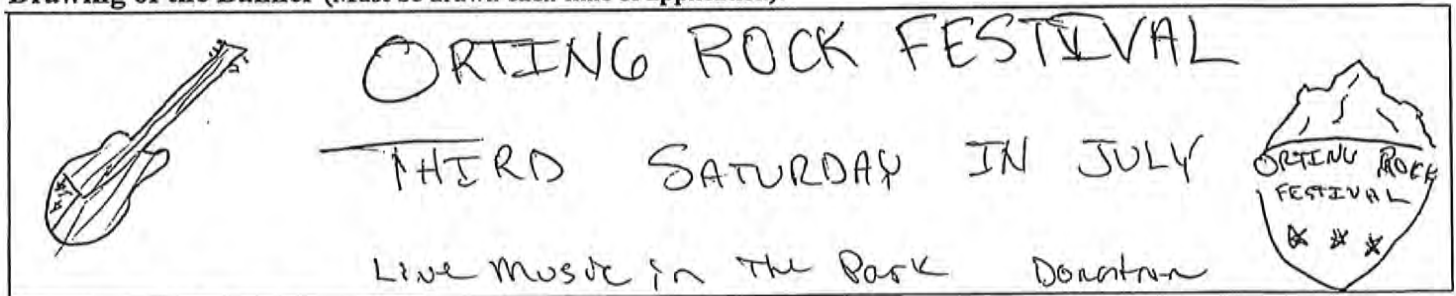 ORTING ROCK FESTIVAL
THIRD SATURDAY IN JULY
Live Music in The Park Downtown
ORTING ROCK
FESTIVAL